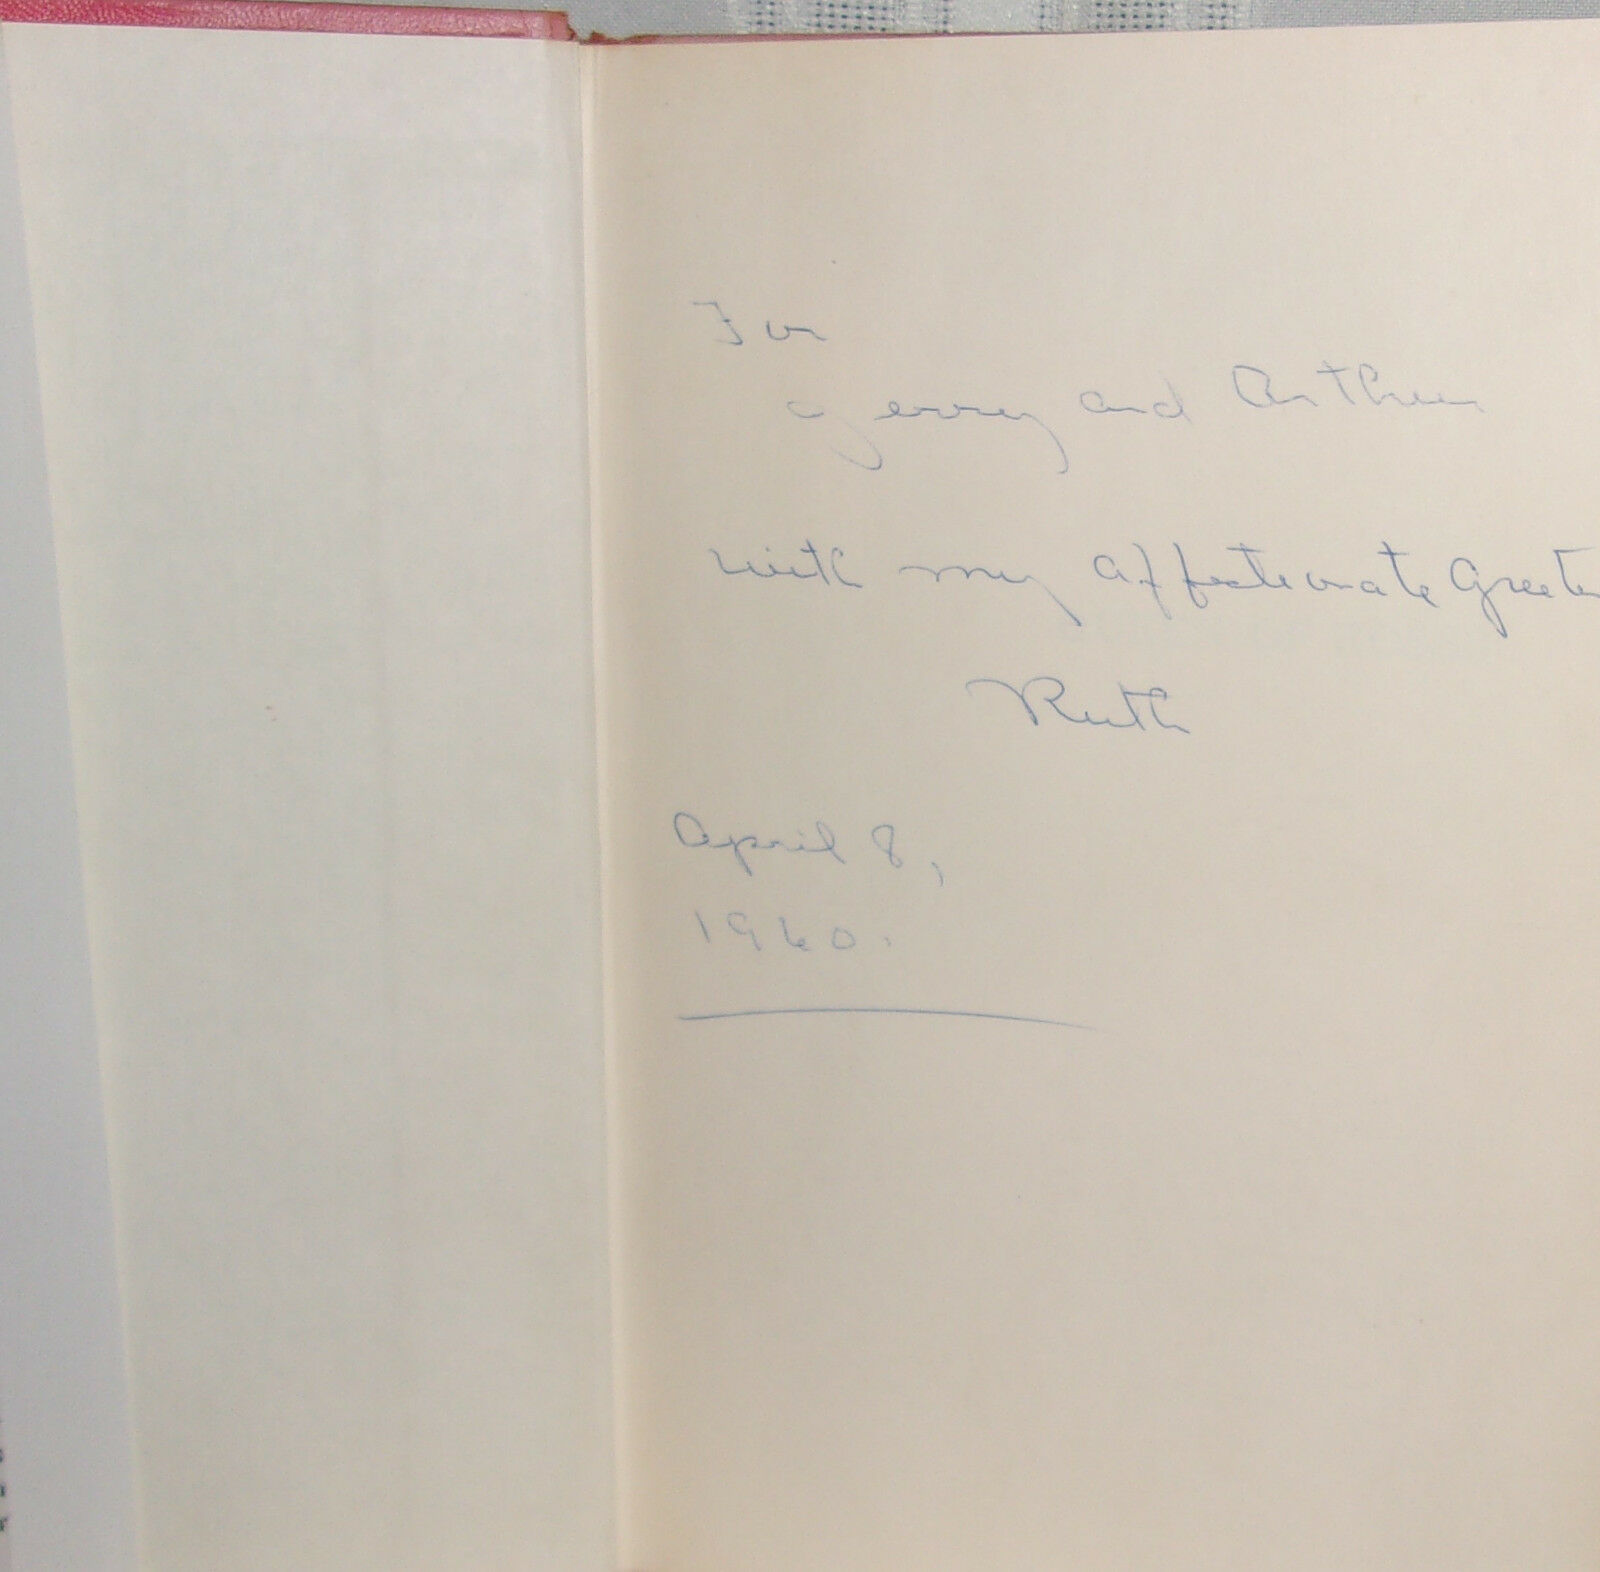 For
Gerry and Arthur
with my affectionate Greetin
Ruth
April 8,
1960.